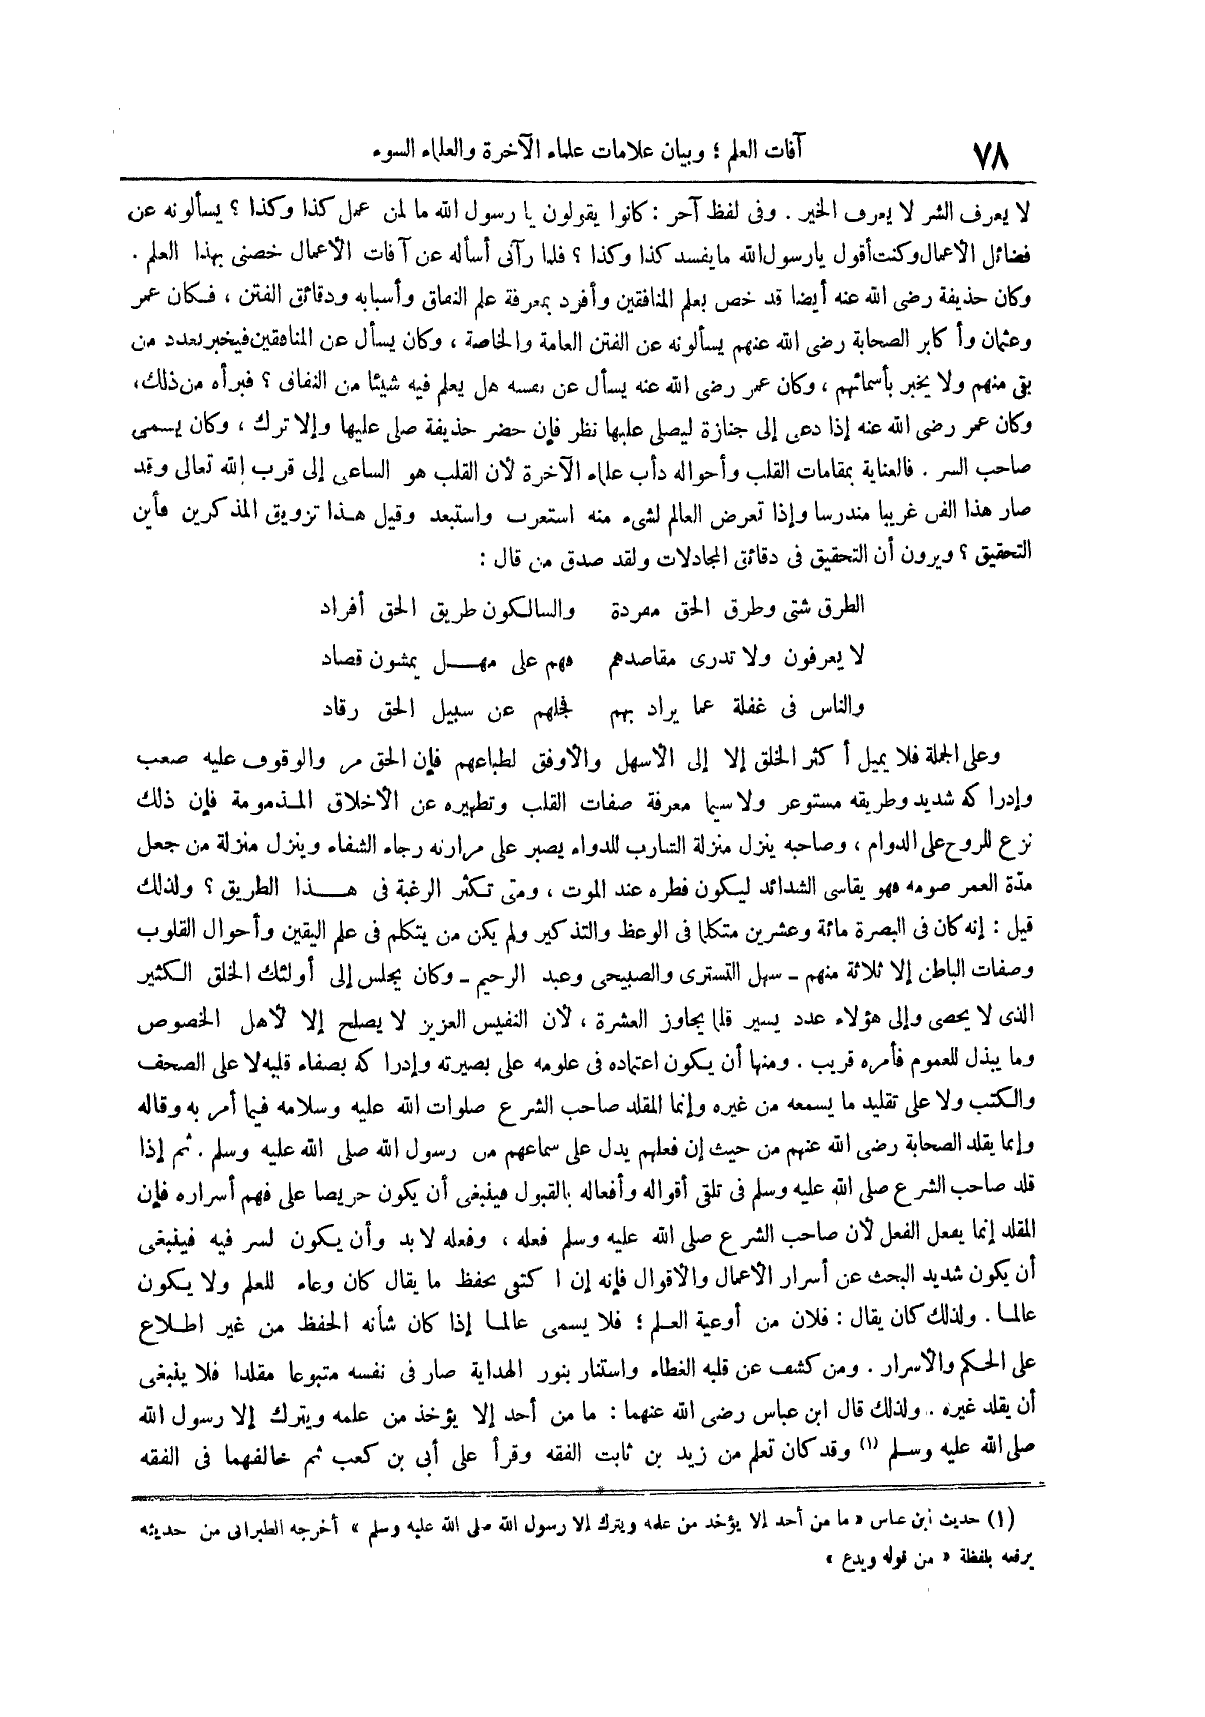 ٧٨
آفات العلم ؛ وبيان علامات علماء الآخرة والعلماء السوء
لا يعرف الشر لا يعرف الخير . وفى لفظ آخر : كانوا يقولون يا رسول الله ما لمن عمل كذا وكذا ؟ يسألونه عن
فضائل الأعمال وكنت أقول يارسول الله مايفسد كذا وكذا ؟ فلما رآنى أسأله عن آفات الأعمال خصنى بهذا العلم .
وكان حذيفة رضى الله عنه أيضا قد خص بعلم المنافقين وأفرد بمعرفة علم النفاق وأسبابه ودقائق الفتن ، فكان عمر
وعثمان وأكابر الصحابة رضى الله عنهم يسألونه عن الفتن العامة والخاصة ، وكان يسأل عن المنافقين فيخبر بعدد من
بقى منهم ولا يخبر بأسمائهم ، وكان عمر رضى الله عنه يسأل عن نفسه هل يعلم فيه شيئا من النفاق ؟ فبرأه من ذلك،
وكان عمر رضى الله عنه إذا دعى إلى جنازة ليصلى عليها نظر فإن حضر حذيفة صلى عليها وإلا ترك ، وكان يسمى
صاحب السر . فالعناية بمقامات القلب وأحواله دأب علماء الآخرة لأن القلب هو الساعى إلى قرب الله تعالى وقد
صار هذا الفن غريبا مندرسا وإذا تعرض العالم لشىء منه استغرب واستبعد وقيل هذا تزويق المذكرين فأين
التحقيق ؟ ويرون أن التحقيق فى دقائق المجادلات ولقد صدق من قال :
الطرق شتى وطرق الحق مفردة والسالكون طريق الحق أفراد
لا يعرفون ولا تدرى مقاصدهم فهم على مهل يمشون قصاد
والناس فى غفلة عما يراد بهم فجلهم عن سبيل الحق رقاد
وعلى الجملة فلا يميل أكثر الخلق إلا إلى الأسهل والأوفق لطباعهم فإن الحق مر والوقوف عليه صعب
وإدراكه شديد وطريقه مستوعر ولا سيما معرفة صفات القلب وتطهيره عن الأخلاق المذمومة فإن ذلك
نزع للروح على الدوام ، وصاحبه ينزل منزلة الشارب للدواء يصبر على مرارته رجاء الشفاء وينزل منزلة من جعل
مدّة العمر صومه فهو يقاسى الشدائد ليكون فطره عند الموت ، ومتى تكثر الرغبة فى هذا الطريق ؟ ولذلك
قيل : إنه كان فى البصرة مائة وعشرين متكلما فى الوعظ والتذكير ولم يكن من يتكلم فى علم اليقين وأحوال القلوب
وصفات الباطن إلا ثلاثة منهم ـ سهل التسترى والصبيحى وعبد الرحيم ـ وكان يجلس إلى أولئك الخلق الكثير
الذى لا يحصى وإلى هؤلاء عدد يسير قلما يجاوز العشرة ، لأن النفيس العزيز لا يصلح إلا لأهل الخصوص
وما يبذل للعموم فأمره قريب . ومنها أن يكون اعتماده فى علومه على بصيرته وإدراكه بصفاء قلبه لا على الصحف
والكتب ولا على تقليد ما يسمعه من غيره وإنما المقلد صاحب الشرع صلوات الله عليه وسلامه فيما أمر به وقاله
وإنما يقلد الصحابة رضى الله عنهم من حيث إن فعلهم يدل على سماعهم من رسول الله صلى الله عليه وسلم . ثم إذا
قلد صاحب الشرع صلى الله عليه وسلم فى تلقى أقواله وأفعاله بالقبول فينبغى أن يكون حريصا على فهم أسراره فإن
المقلد إنما يفعل الفعل لأن صاحب الشرع صلى الله عليه وسلم فعله ، وفعله لا بد وأن يكون لسر فيه فينبغى
أن يكون شديد البحث عن أسرار الأعمال والأقوال فإنه إن اكتفى بحفظ ما يقال كان وعاء للعلم ولا يكون
عالما . ولذلك كان يقال : فلان من أوعية العلم ؛ فلا يسمى عالما إذا كان شأنه الحفظ من غير اطلاع
على الحكم والأسرار . ومن كشف عن قلبه الغطاء واستنار بنور الهداية صار فى نفسه متبوعا مقلدا فلا ينبغى
أن يقلد غيره . ولذلك قال ابن عباس رضى الله عنهما : ما من أحد إلا يؤخذ من علمه ويترك إلا رسول الله
صلى الله عليه وسلم (١) وقد كان تعلم من زيد بن ثابت الفقه وقرأ على أبى بن كعب ثم خالفهما فى الفقه
(١) حديث ابن عباس « ما من أحد إلا يؤخذ من علمه ويترك إلا رسول الله صلى الله عليه وسلم » أخرجه الطبرانى من حديثه
يرفعه بلفظة « من قوله ويدع »